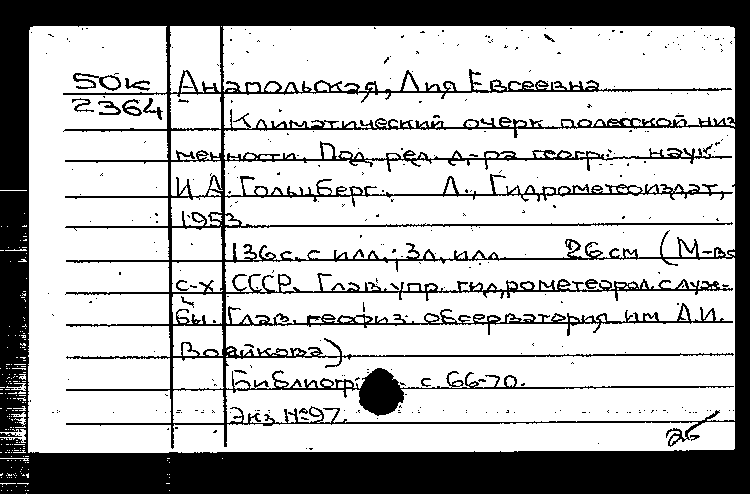 50к Анапольская, Лия Евсеевна
2364
Климатический очерк полесской низ
менности. Под ред. д-ра геогр. наук
И.А. Гольцберг. Л., Гидрометеоиздат,
1953.
136 с. с илл.; 3 л. илл. 26 см (М-во
с-х. СССР. Глав. упр. гидрометеорол. служ-
бы. Глав. геофиз. обсерватория им А.И.
Воейкова).
Библиогр. с. 66-70.
Экз №97.